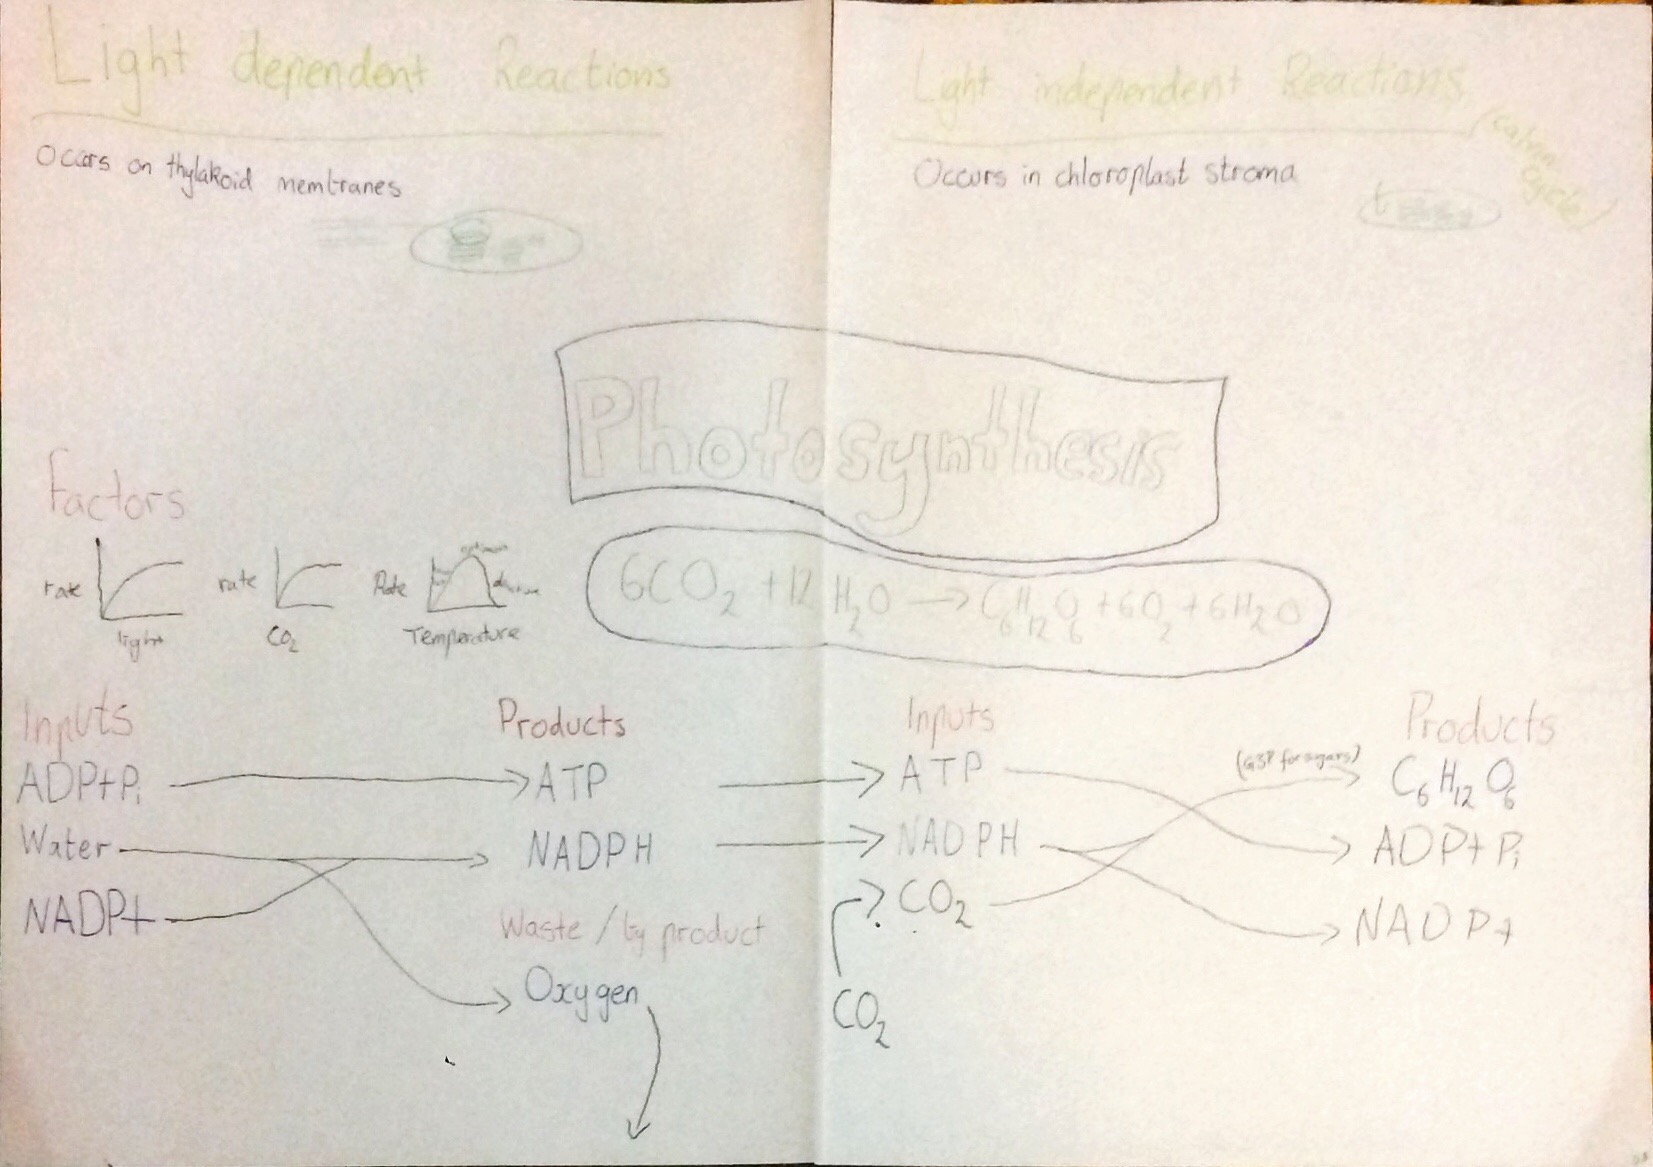 Light dependent Reactions
Occurs on thylakoid membranes
Light independent Reactions
(calvin cycle)
Occurs in chloroplast stroma
Photosynthesis
6CO₂ + 12 H₂O → C₆H₁₂O₆ + 6O₂ + 6H₂O
Factors
rate
light
rate
CO₂
Rate
optimum
Temperature
Inputs
Products
ADP+Pᵢ → ATP
Water → NADPH
NADP+
Waste / by product
Oxygen
Inputs
Products
ATP
(G3P for sugars)
C₆H₁₂O₆
NADPH
ADP+Pᵢ
? CO₂
NADP+
CO₂